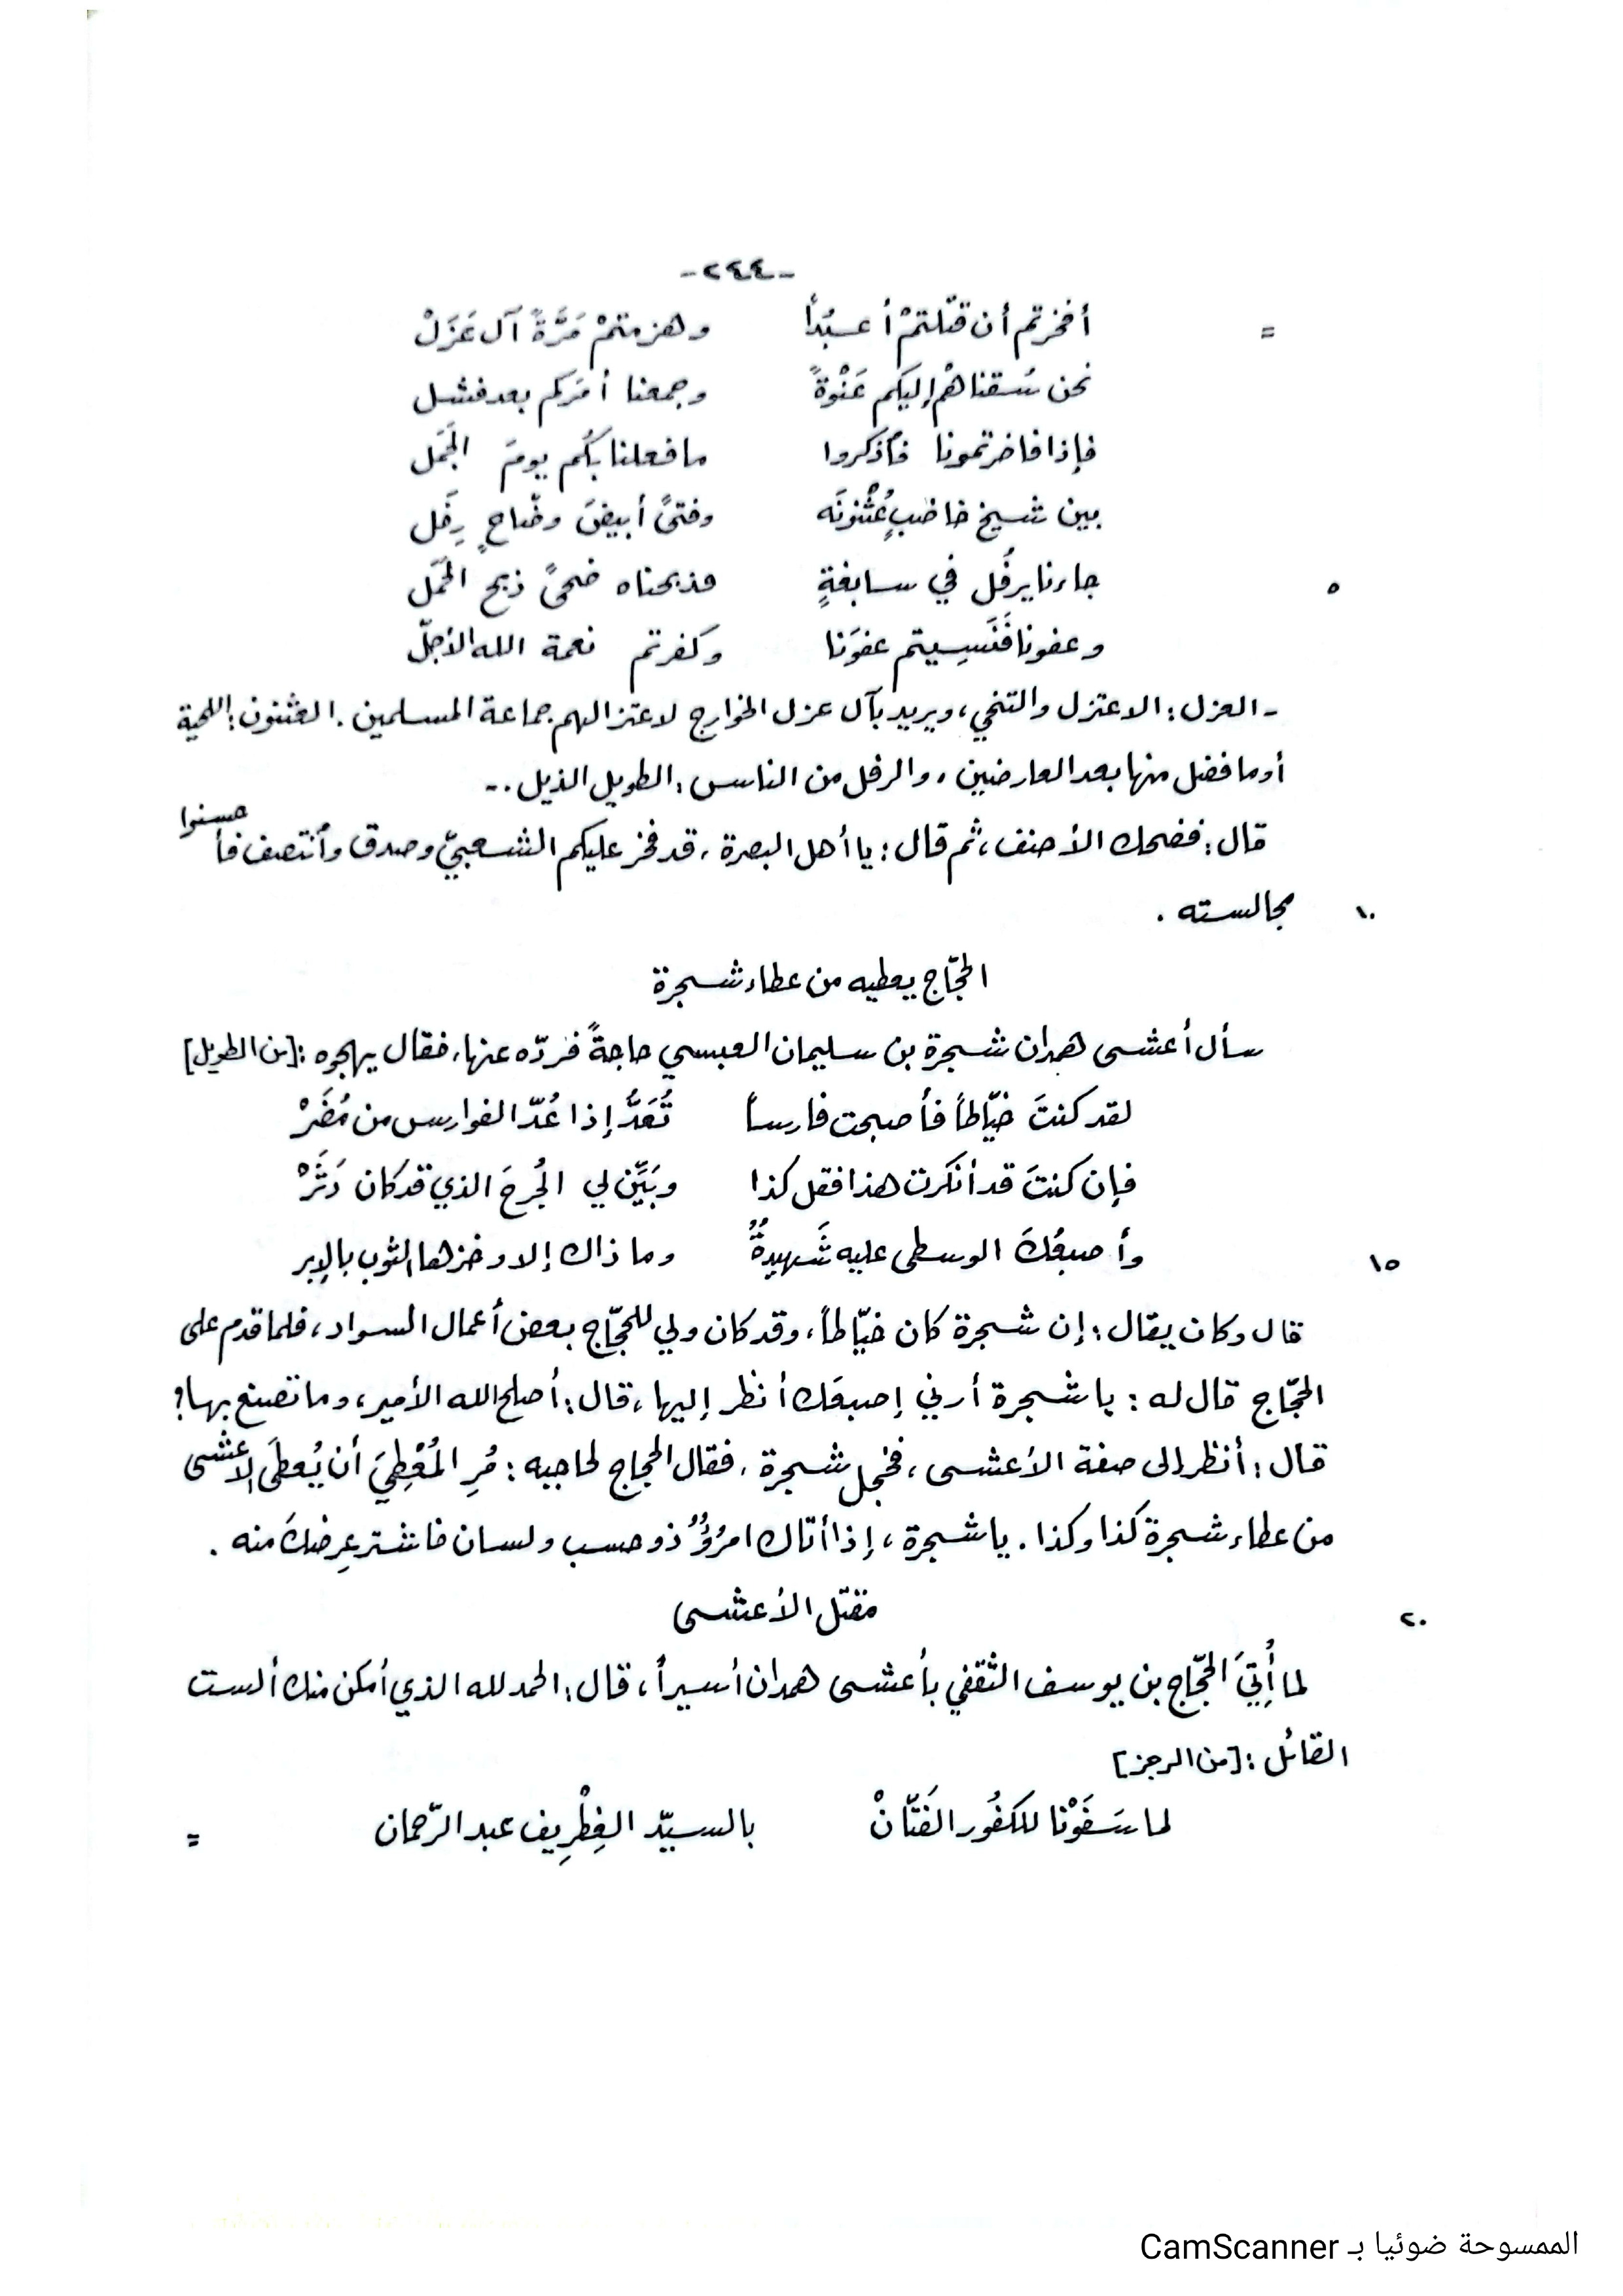 -٢٤٤-
= أفخرتم أن قتّلتمْ أعبُداً وهزمتمْ مَرَّةً آل عَزَلْ
نحن سُقناهْم إليكم عَنْوةً وجمعنا أمرَكم بعد فشل
فإذا فاخرتمونا فاذكروا ما فعلنا بكُم يومَ الجَمَل
بين شيخ خاضبٍ عُثْنونَه وفتىً أبيضَ وضّاحٍ رِفَل
٥ جاءنا يرفُل في سابغةٍ فذبحناه ضحىً ذبح الحَمَل
وعفونا فَنَسِيتم عفوَنا وكفرتم نعمة الله الأجلّ
- العزل : الاعتزل والتنحي، ويريد بآل عزل الخوارج لاعتزالهم جماعة المسلمين . العثنون : اللحية
أو ما فضل منها بعد العارضين . والرفل من الناس : الطويل الذيل . -
قال : فضحك الأحنف ، ثم قال : يا أهل البصرة ، قد فخر عليكم الشعبيّ وصدق وأنتصف فأحسنوا
١٠ مجالسته .
الحجّاج يعطيه من عطاء شجرة
سأل أعشى همدان شجرة بن سليمان العبسي حاجةً فردّه عنها ، فقال يهجوه : [من الطويل]
لقد كنتَ خيّاطاً فأصبحت فارساً تُعَدُّ إذا عُدّ الفوارس من مُضَرْ
فإن كنتَ قد أنكرت هذا فقل كذا وبَيِّن لي الجُرحَ الذي قد كان دَثَرْ
١٥ وأصبعُكَ الوسطى عليه شَهيدةٌ وما ذاك إلا وخزها الثوب بالإبر
قال وكان يقال : إن شجرة كان خيّاطاً ، وقد كان ولي للحجّاج بعض أعمال السواد ، فلما قدم على
الحجّاج قال له : يا شجرة أرني إصبعَك أنظر إليها ، قال : أصلح الله الأمير ، وما تصنع بها ؟
قال : أنظر إلى صفة الأعشى ، فخجل شجرة . فقال الحجاج لحاجبه : مُرِ المُعْطِيَ أن يُعطَى الأعشى
من عطاء شجرة كذا وكذا . يا شجرة ، إذا أتاك امرُؤٌ ذو حسب ولسان فاشتر عِرضكَ منه .
٢٠ مقتل الأعشى
لما أُتِيَ الحجّاج بن يوسف الثقفي بأعشى همدان أسيراً ، قال : الحمد لله الذي أمكن منك ألست
القائل : [من الرجز]
لما سَفَوْنا للكفُور الفَتّانْ بالسيّد الغِطْرِيف عبد الرّحمان =
الممسوحة ضوئيا بـ CamScanner